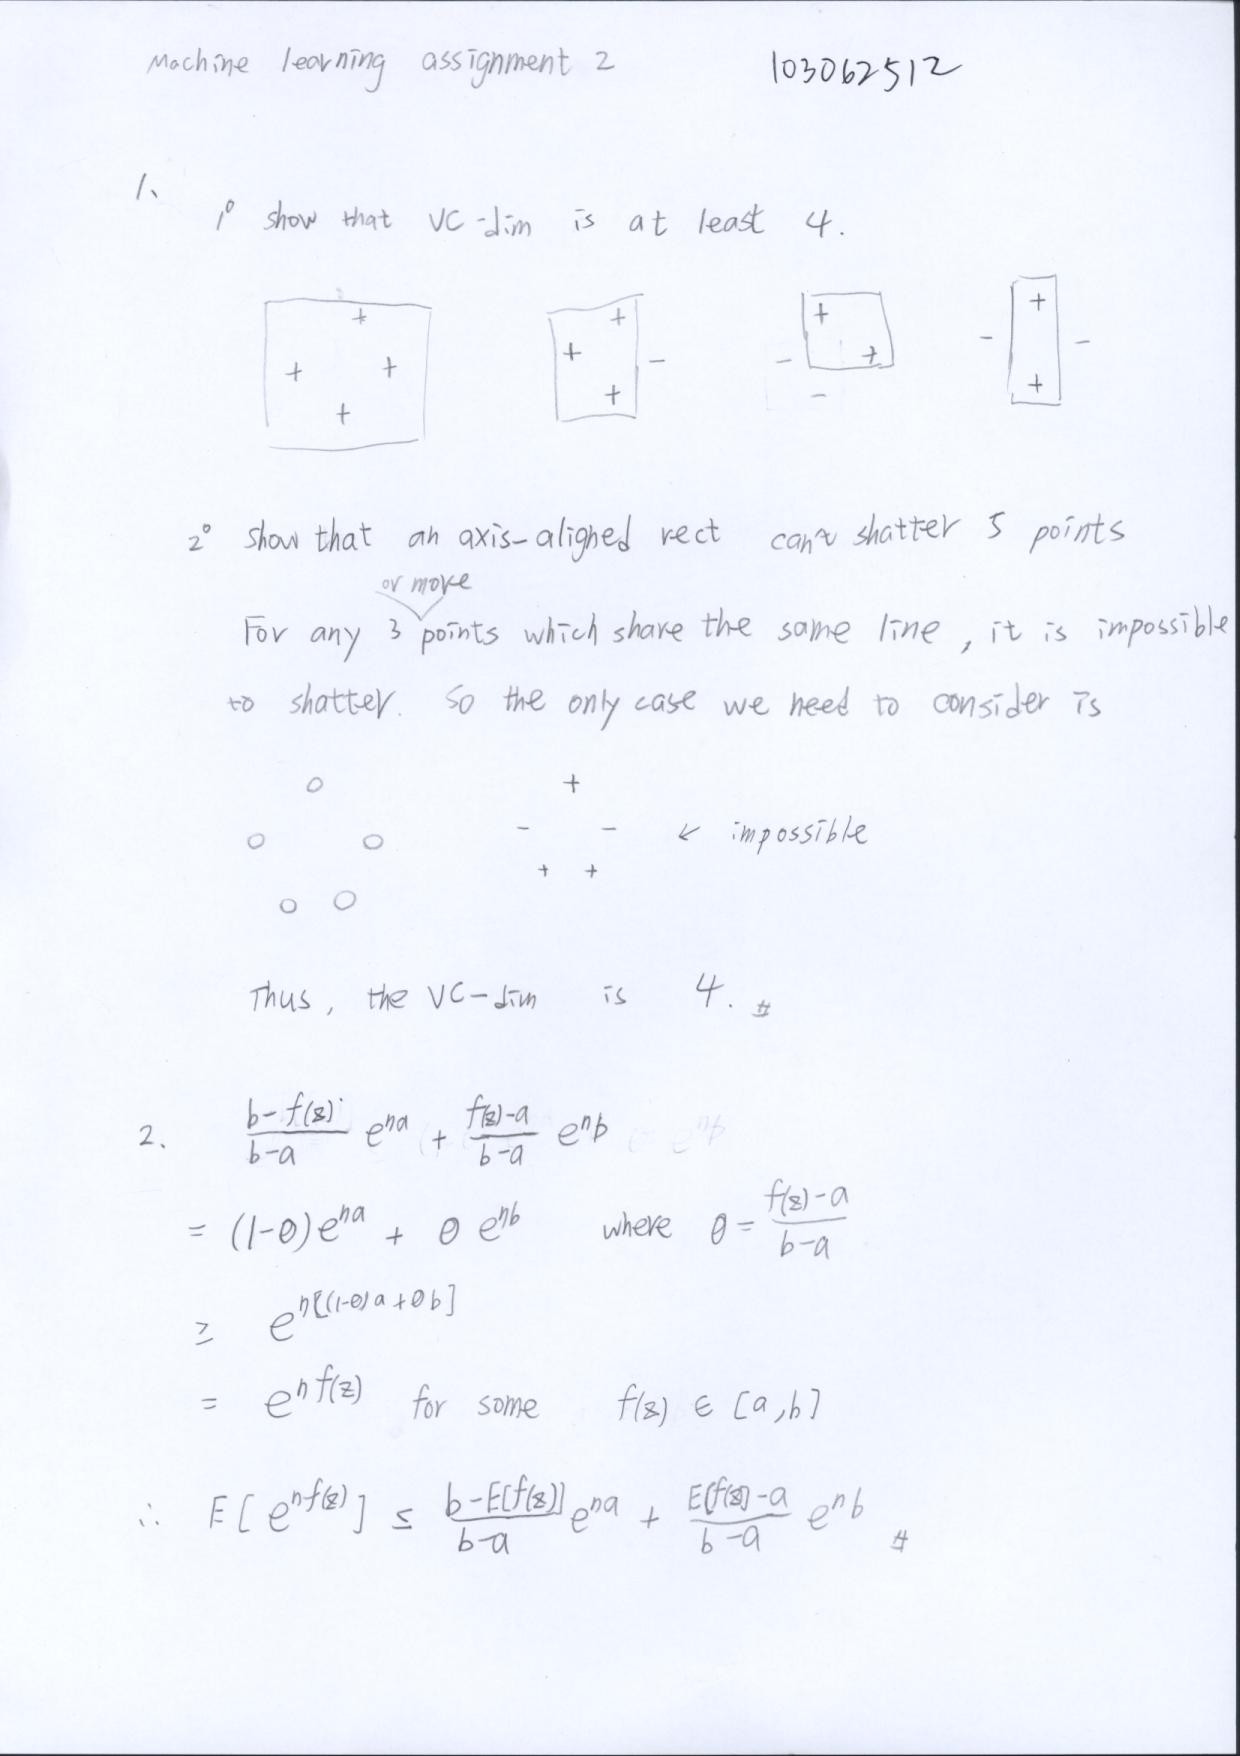 Machine learning assignment 2 103062512
1、
1° show that VC-dim is at least 4.
+ + + -
+ + + - + - + -
+ + - +
2° show that an axis-aligned rect can't shatter 5 points
or more
For any 3 points which share the same line, it is impossible
to shatter. So the only case we need to consider is
+
- - ← impossible
+ +
Thus, the VC-dim is 4. #
2. \frac{b-f(z)}{b-a} e^{ηa} + \frac{f(z)-a}{b-a} e^{ηb}
= (1-θ)e^{ηa} + θ e^{ηb} where θ = \frac{f(z)-a}{b-a}
≥ e^{η[(1-θ)a+θb]}
= e^{ηf(z)} for some f(z) ∈ [a,b]
∴ E[e^{ηf(z)}] ≤ \frac{b-E[f(z)]}{b-a} e^{ηa} + \frac{E[f(z)]-a}{b-a} e^{ηb} #